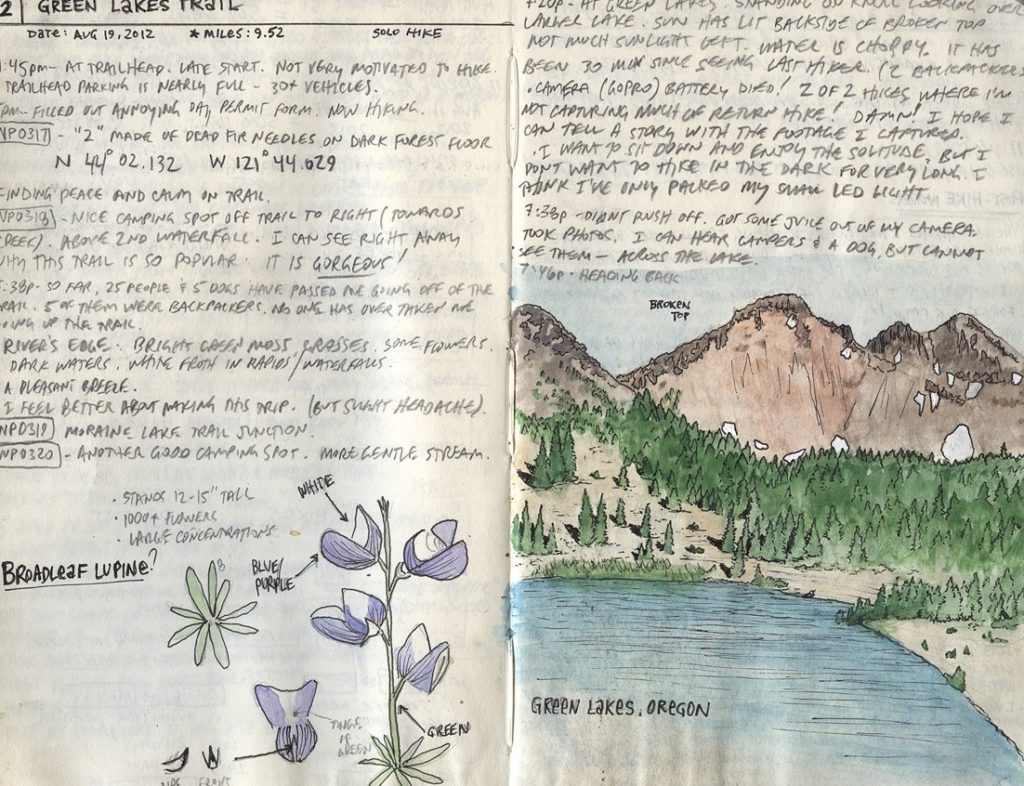 2 GREEN LAKES TRAIL
DATE: AUG 19, 2012 * MILES: 9.52 SOLO HIKE
:45pm - AT TRAILHEAD. LATE START. NOT VERY MOTIVATED TO HIKE.
TRAILHEAD PARKING IS NEARLY FULL - 30+ VEHICLES.
pm - FILLED OUT ANNOYING DAY PERMIT FORM. NOW HIKING.
WP0317 - "2" MADE OF DEAD FIR NEEDLES ON DARK FOREST FLOOR
N 44° 02.132 W 121° 44.029
FINDING PEACE AND CALM ON TRAIL.
WP0318 - NICE CAMPING SPOT OFF TRAIL TO RIGHT (TOWARDS
CREEK). ABOVE 2ND WATERFALL. I CAN SEE RIGHT AWAY
WHY THIS TRAIL IS SO POPULAR. IT IS GORGEOUS!
:38p - SO FAR, 25 PEOPLE & 5 DOGS HAVE PASSED ME GOING OFF OF THE
TRAIL. 5 OF THEM WERE BACKPACKERS. NO ONE HAS OVER TAKEN ME
GOING UP THE TRAIL.
RIVER'S EDGE. BRIGHT GREEN MOSS, GRASSES. SOME FLOWERS.
DARK WATERS. WHITE FROTH IN RAPIDS/WATERFALLS.
A PLEASANT BREEZE.
I FEEL BETTER ABOUT MAKING THIS TRIP. (BUT SLIGHT HEADACHE).
WP0319 MORAINE LAKE TRAIL JUNCTION.
WP0320 - ANOTHER GOOD CAMPING SPOT. MORE GENTLE STREAM.
• STANDS 12-15" TALL
• 1000+ FLOWERS
• LARGE CONCENTRATIONS
BROADLEAF LUPINE?
8
WHITE
BLUE/
PURPLE
TINGE
OF
GREEN
GREEN
SIDE FRONT
7:20p - AT GREEN LAKES. STANDING ON KNOLL LOOKING OVER
LARGER LAKE. SUN HAS LIT BACKSIDE OF BROKEN TOP
NOT MUCH SUNLIGHT LEFT. WATER IS CHOPPY. IT HAS
BEEN 30 MIN SINCE SEEING LAST HIKER. (2 BACKPACKERS
• CAMERA (GOPRO) BATTERY DIED! 2 OF 2 HIKES WHERE I'M
NOT CAPTURING MUCH OF RETURN HIKE! DAMN! I HOPE I
CAN TELL A STORY WITH THE FOOTAGE I CAPTURED.
• I WANT TO SIT DOWN AND ENJOY THE SOLITUDE, BUT I
DON'T WANT TO HIKE IN THE DARK FOR VERY LONG. I
THINK I'VE ONLY PACKED MY SMALL LED LIGHT.
7:38p - DIDN'T RUSH OFF. GOT SOME JUICE OUT OF MY CAMERA.
TOOK PHOTOS. I CAN HEAR CAMPERS & A DOG, BUT CANNOT
SEE THEM - ACROSS THE LAKE.
7:46p - HEADING BACK
BROKEN
TOP
GREEN LAKES, OREGON